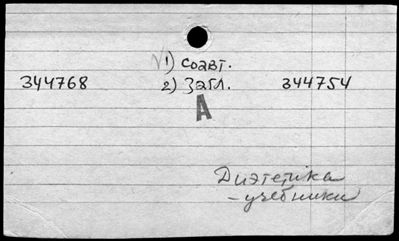 √1) соавт.
344768 2) Загл. 344754
А
Диэтетика
- учебники